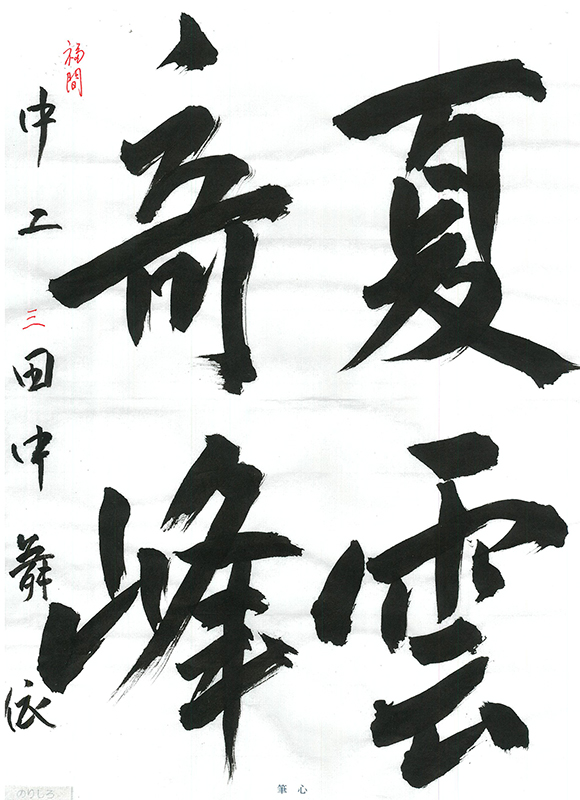 夏雲
奇峰
福間
中二 三 田中舞依
のりしろ
筆心